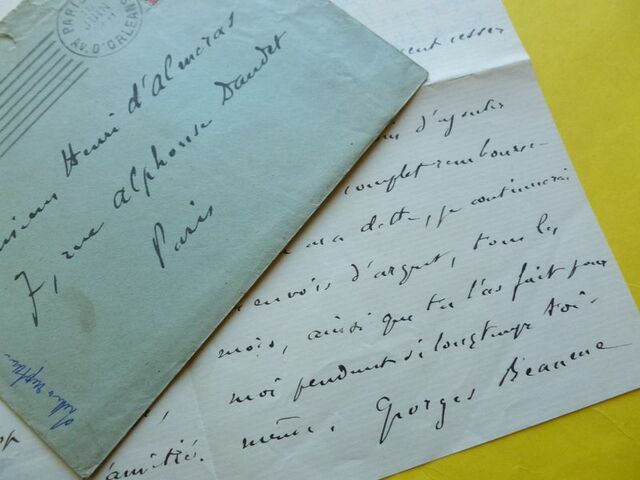 PARIS
JUIN
AV. D'ORLEANS
Henri d'Almeras
7, rue Alphonse Daudet
Paris
cesser
d'ajouter
complet rembourse-
ma dette, je continuerai
envois d'argent, tous les
mois, ainsi que tu l'as fait pour
moi pendant si longtemps toi-
même. Georges Beaume
amitié.